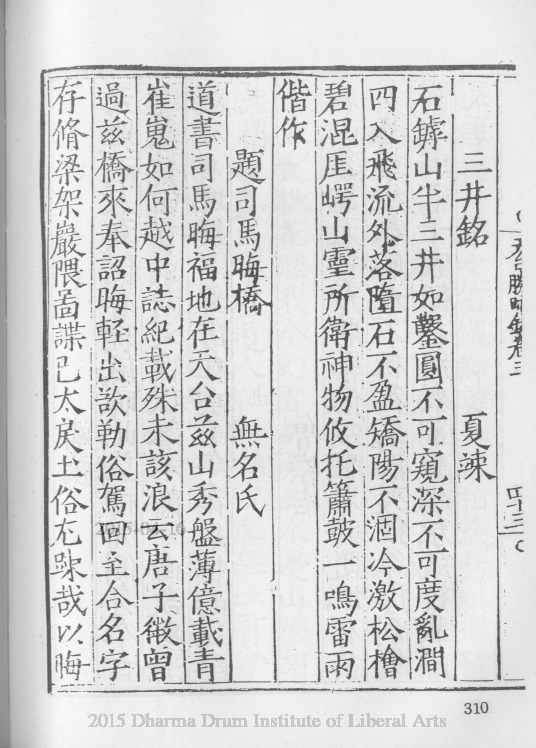 天台勝蹟錄卷三
四十三
三井銘 夏竦
石罅山半三井如鑿圓不可窺深不可度亂澗
四入飛流外落隨石不盈矯陽不涸冷激松檜
碧混厓崿山靈所衛神物攸托簫皷一鳴雷雨
偕作
題司馬晦橋 無名氏
道書司馬晦福地在天台茲山秀盤薄億載青
崔嵬如何越中誌紀載殊未該浪云唐子微曾
過茲橋來奉詔晦輕出欲勒俗駕回主合名字
存脩梁架巖隈啚諜已太戾土俗尤踈哉以晦
310
2015 Dharma Drum Institute of Liberal Arts